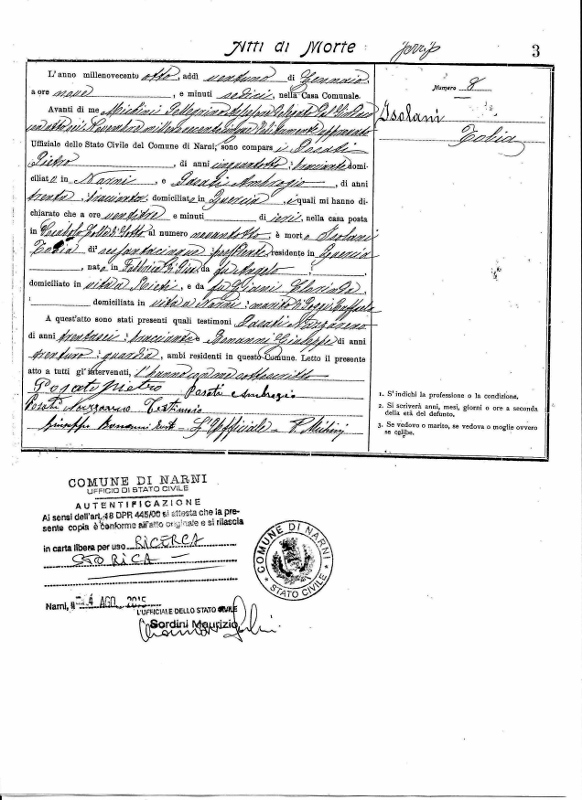 Atti di Morte
3
L'anno millenovecento otto, addì ventuno di Gennaio
a ore nove, e minuti sedici, nella Casa Comunale.
Avanti di me Michini Pellegrino Assessore Delegato dal Sindaco
con atto sei Novembre mille novecento cinque debitamente approvato
Uffiziale dello Stato Civile del Comune di Narni, sono comparsi Posati
Pietro, di anni cinquantotto, bracciante domi-
ciliato in Narni, e Posati Ambrogio, di anni
trenta, bracciante domiciliato in Guercia, i quali mi hanno di-
chiarato che a ore ventitre e minuti di ieri, nella casa posta
in al numero , è morto Isolani
Tobia di sessantacinque residente in Guercia
, nato in da fu Angelo
domiciliato in vita a Rieti, e da fu
domiciliata in vita a Narni: marito di Raffaela
A quest'atto sono stati presenti quali testimoni Posati Nazzareno
di anni trentasei, bracciante e Bonanni Giuseppe di anni
trentuno, guardia, ambi residenti in questo Comune. Letto il presente
atto a tutti gl'intervenuti, l'hanno con me sottoscritto
Posati Pietro Posati Ambrogio
Posati Nazzareno Testimonio
Giuseppe Bonanni test. L'Uffiziale P. Michini
Numero 8
Isolani
Tobia
1. S'indichi la professione o la condizione.
2. Si scriverà anni, mesi, giorni o ore a seconda
della età del defunto.
3. Se vedovo o marito, se vedova o moglie ovvero
se celibe.
COMUNE DI NARNI
UFFICIO DI STATO CIVILE
AUTENTIFICAZIONE
Ai sensi dell'art. 18 DPR 445/00 si attesta che la pre-
sente copia è conforme all'atto originale e si rilascia
in carta libera per uso RICERCA
STORICA
Narni, lì 4 AGO. 2015
L'UFFICIALE DELLO STATO CIVILE
Sordini Maurizio
COMUNE DI NARNI
STATO CIVILE